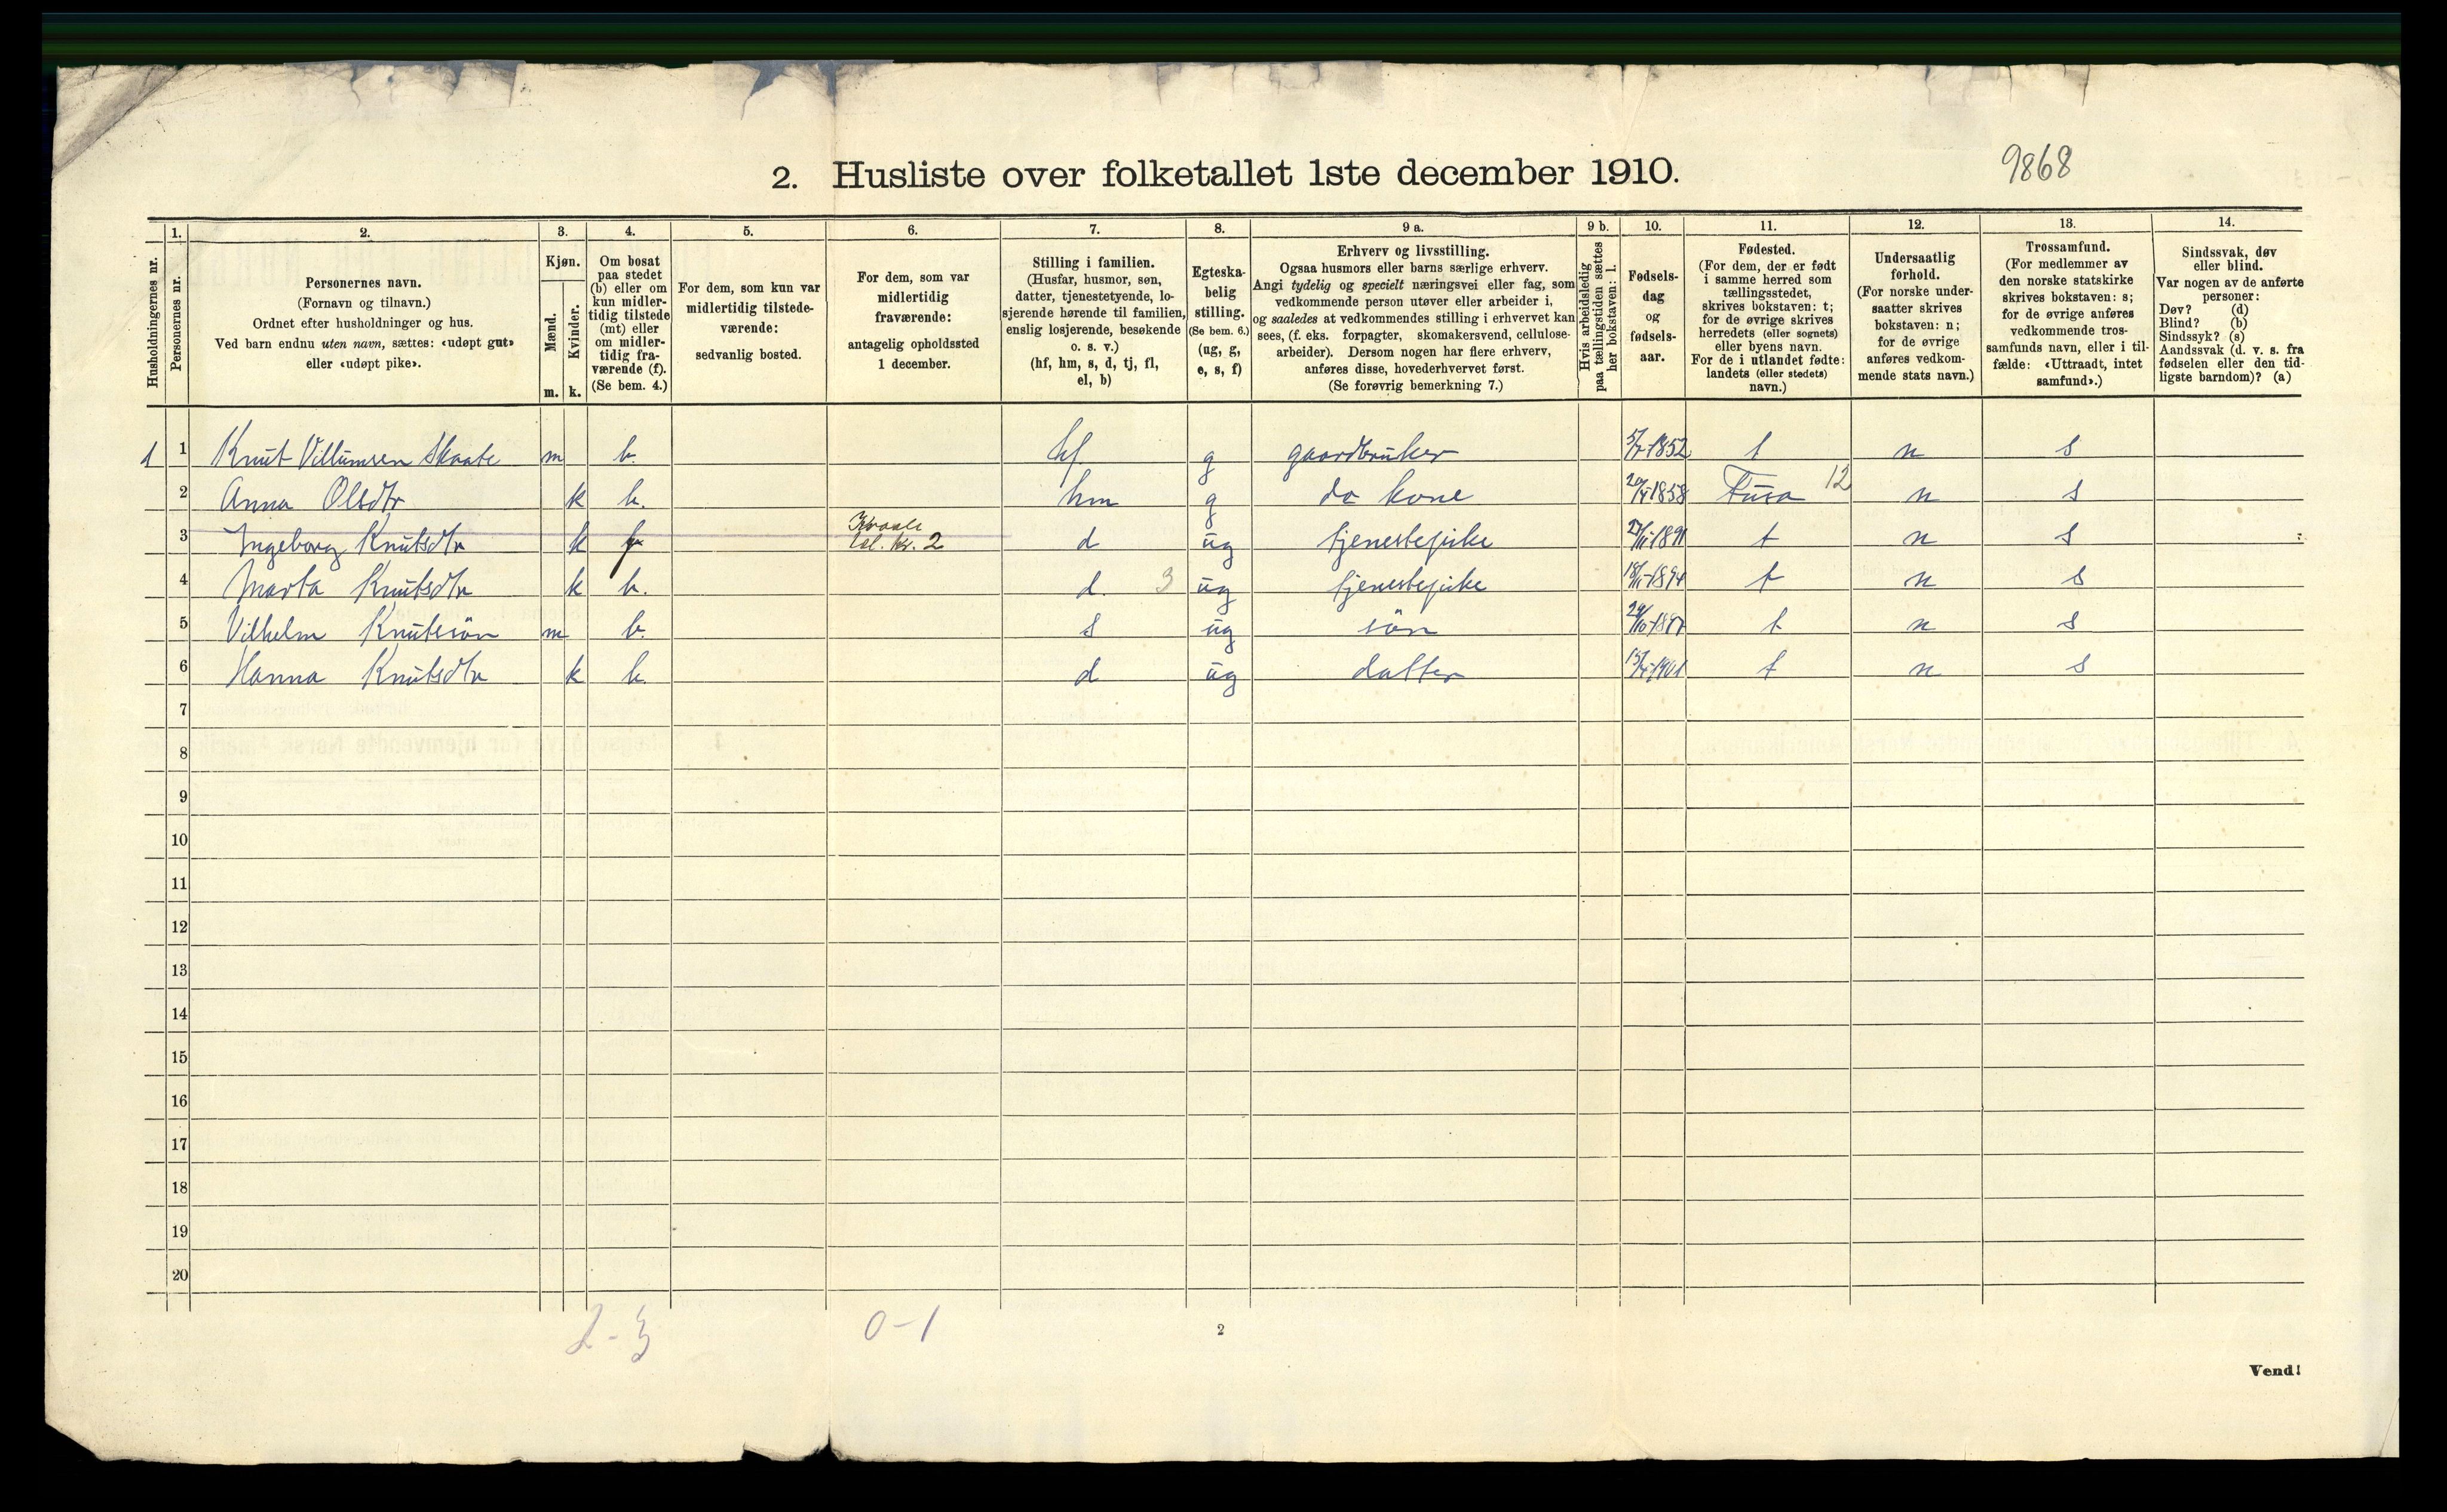 9868
2. Husliste over folketallet 1ste december 1910.
Husholdningernes nr.
1.
Personernes nr.
2.
Personernes navn.
(Fornavn og tilnavn.)
Ordnet efter husholdninger og hus.
Ved barn endnu uten navn, sættes: «udøpt gut»
eller «udøpt pike».
3.
Kjøn.
Mænd.
m.
Kvinder.
k.
4.
Om bosat
paa stedet
(b) eller om
kun midler-
tidig tilstede
(mt) eller
om midler-
tidig fra-
værende (f).
(Se bem. 4.)
5.
For dem, som kun var
midlertidig tilstede-
værende:
sedvanlig bosted.
6.
For dem, som var
midlertidig
fraværende:
antagelig opholdssted
1 december.
7.
Stilling i familien.
(Husfar, husmor, søn,
datter, tjenestetyende, lo-
sjerende hørende til familien,
enslig losjerende, besøkende
o. s. v.)
(hf, hm, s, d, tj, fl,
el, b)
8.
Egteska-
belig
stilling.
(Se bem. 6.)
(ug, g,
e, s, f)
9 a.
Erhverv og livsstilling.
Ogsaa husmors eller barns særlige erhverv.
Angi tydelig og specielt næringsvei eller fag, som
vedkommende person utøver eller arbeider i,
og saaledes at vedkommendes stilling i erhvervet kan
sees, (f. eks. forpagter, skomakersvend, cellulose-
arbeider). Dersom nogen har flere erhverv,
anføres disse, hovederhvervet først.
(Se forøvrig bemerkning 7.)
9 b.
Hvis arbeidsledig
paa tællingstiden sættes
her bokstaven: l.
10.
Fødsels-
dag
og
fødsels-
aar.
11.
Fødested.
(For dem, der er født
i samme herred som
tællingsstedet,
skrives bokstaven: t;
for de øvrige skrives
herredets (eller sognets)
eller byens navn.
For de i utlandet fødte:
landets (eller stedets)
navn.)
12.
Undersaatlig
forhold.
(For norske under-
saatter skrives
bokstaven: n;
for de øvrige
anføres vedkom-
mende stats navn.)
13.
Trossamfund.
(For medlemmer av
den norske statskirke
skrives bokstaven: s;
for de øvrige anføres
vedkommende tros-
samfunds navn, eller i til-
fælde: «Uttraadt, intet
samfund».)
14.
Sindssvak, døv
eller blind.
Var nogen av de anførte
personer:
Døv? (d)
Blind? (b)
Sindssyk? (s)
Aandssvak (d. v. s. fra
fødselen eller den tid-
ligste barndom)? (a)
1 1 Knut Villumsen Skaate m b. hf. g gaardbruker 5/7-1852 t n s
2 Anna Olsdtr k b. hm g do kone 1858 Fusa 12 n s
3 Ingeborg Knutsdtr k f 2 d ug tjenestepike 1891 t n s
4 Marta Knutsdtr k b. d. 3 ug tjenestepike 1894 t n s
5 Vilhelm Knutsøn m b. s ug søn t n s
6 Hanna Knutsdtr k b. d ug datter 1901 t n s
7
8
9
10
11
12
13
14
15
16
17
18
19
20
2-3 0-1
2
Vend!